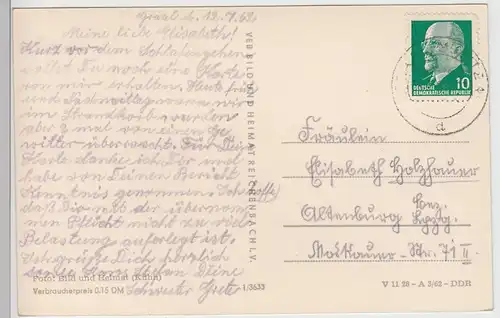 Graal d. 12.7.62.
Meine liebe Elisabeth!
Kurz vor dem Schlafengehen
sollst Du noch eine Karte
von mir erhalten. Heute früh
und Nachmittag waren wir
im Strandkorb, wurden
aber 2 mal von einem Ge-
witter überrascht. Für Deine
Karte danke ich Dir und
habe von Deinen Bericht
Kenntnis genommen. Ich hoffe,
daß Dir als der übernom-
menen Pflicht nicht zu viel
Belastung auferlegt ist.
Ich grüße Dich herzlich
Deine
Schwester Grete
Foto: Bild und Heimat (Kühn)
Verbraucherpreis 0,15 DM
1/3633
VEB BILD UND HEIMAT REICHENBACH I. V.
DEUTSCHE
DEMOKRATISCHE REPUBLIK
10
d
Fräulein
Elisabeth Holzhauer
Altenburg Bez.
Lpzg.
Moskauer-Str. 71 II
V 11 28 - A 2/62 - DDR